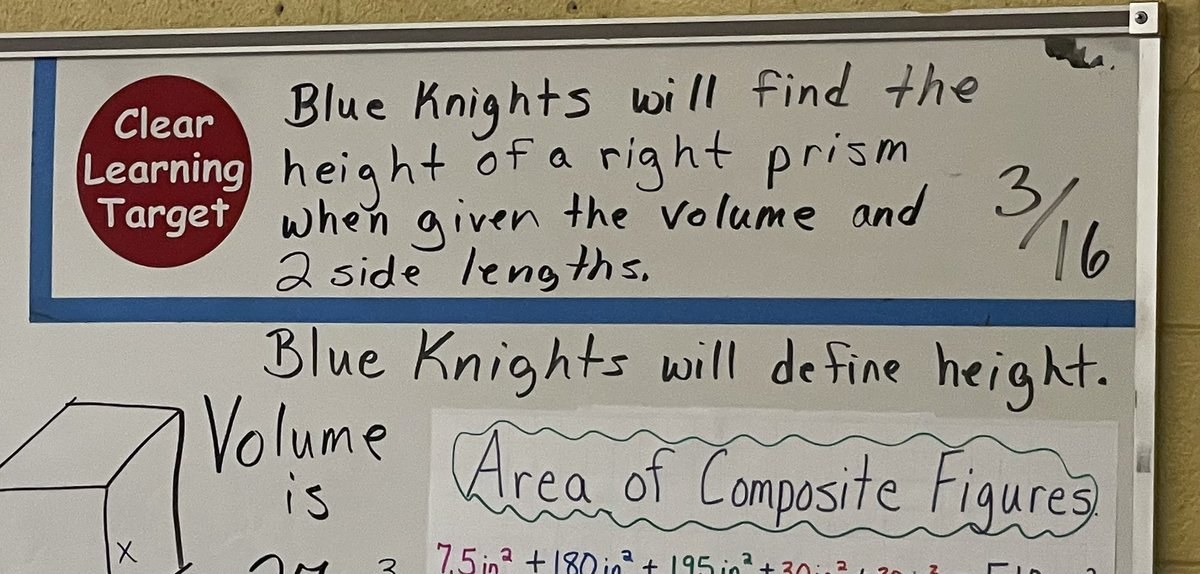 Clear
Learning
Target
Blue Knights will find the
height of a right prism
when given the volume and
2 side lengths.
3/16
Blue Knights will define height.
Volume
is
x
Area of Composite Figures.
7.5in² + 180in² + 195in² +